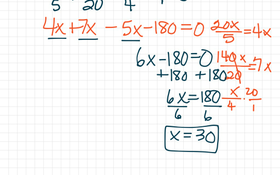 5 20 4
4x + 7x - 5x - 180 = 0 20x/5 = 4x
6x - 180 = 0 140x/20 = 7x
+180 +180
6x = 180 x/4 · 20/1
6 6
x = 30